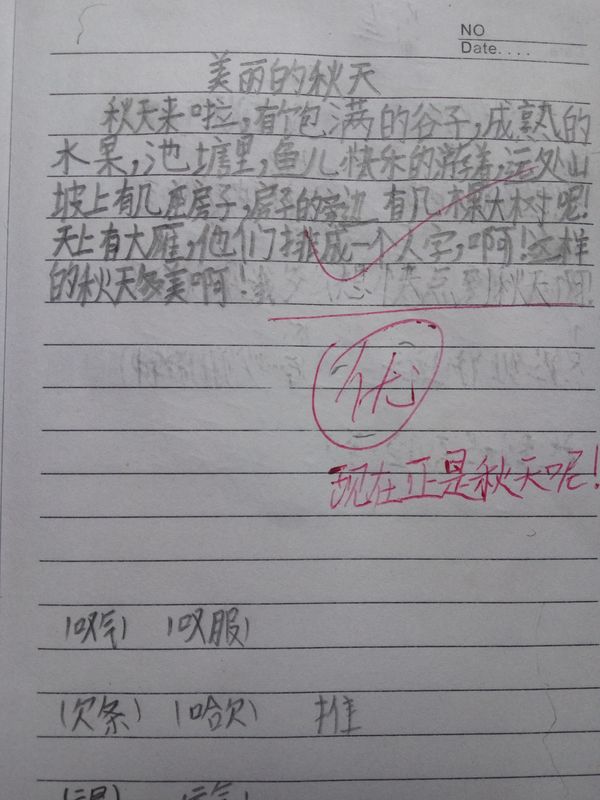 NO
Date....
美丽的秋天
秋天来啦,有饱满的谷子,成熟的
水果,池塘里,鱼儿快乐的游着,远处山
坡上有几座房子,房子的旁边 有几棵大树呢!
天上有大雁,他们排成一个人字,啊!这样
的秋天多美啊! 我多想快点到秋天啊!
优
现在正是秋天呢!
(叹气) (叹服)
(欠条) (哈欠) 推